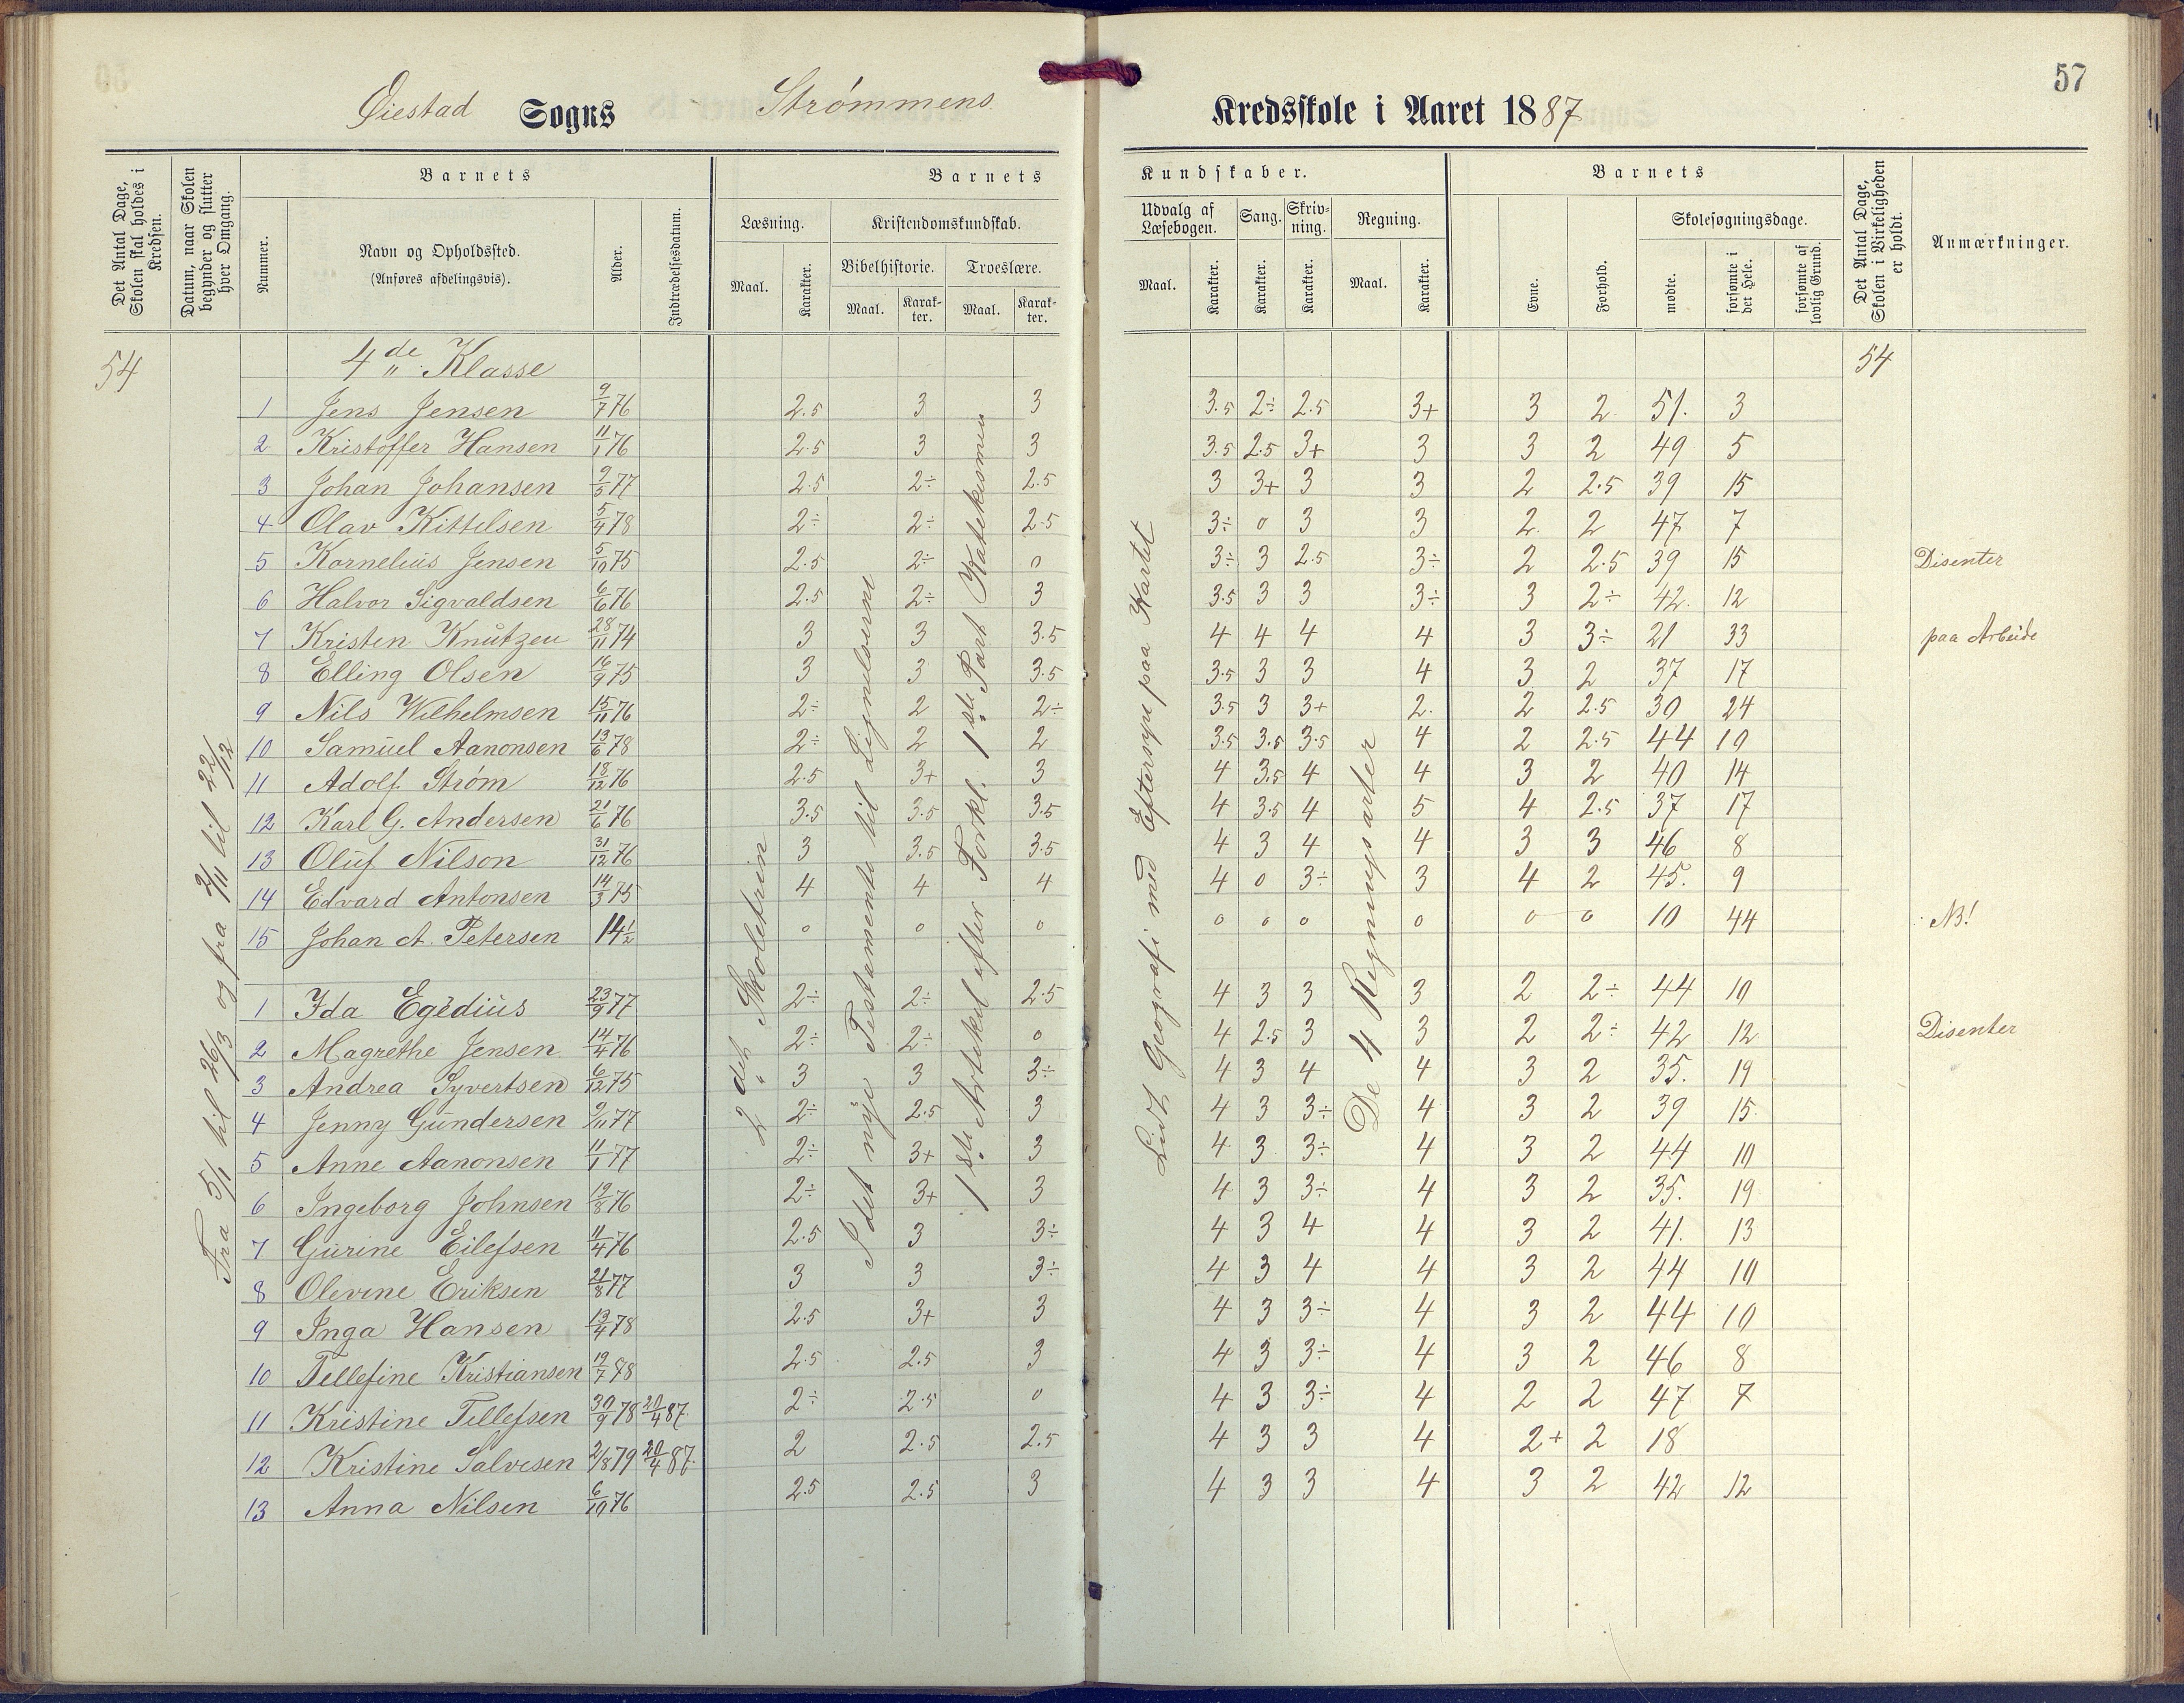 57
Øiestad Sogns Strømmens Kredsskole i Aaret 1887
Det Antal Dage, Skolen skal holdes i Kredsen.
Datum, naar Skolen begynder og slutter hver Omgang.
Barnets
Nummer.
Navn og Opholdssted.
(Anføres afdelingsvis).
Alder.
Indtrædelsesdatum.
Barnets Kundskaber.
Læsning.
Maal.
Karakter.
Kristendomskundskab.
Bibelhistorie.
Maal.
Karak-ter.
Troeslære.
Maal.
Karak-ter.
Udvalg af Læsebogen.
Maal.
Karakter.
Sang.
Karakter.
Skriv-ning.
Karakter.
Regning.
Maal.
Karakter.
Barnets
Evne.
Forhold.
Skolesøgningsdage.
mødte.
forsømte i det Hele.
forsømte af lovlig Grund.
Det Antal Dage, Skolen i Virkeligheden er holdt.
Anmærkninger.
54 4de Klasse 54
Fra 5/1 til 26/3 og fra 2/11 til 22/12
2det Skoletrin
I det nye Testamente til Lignelserne
1ste Artikel efter Forkl. 1ste Part Katekismen
Lidt Geografi med Eftersyn paa Kartet
De 4 Regningsarter
1 Jens Jensen 9/7 76 2.5 3 3 3.5 2÷ 2.5 3+ 3 2 51. 3
2 Kristoffer Hansen 11/1 76 2.5 3 3 3.5 2.5 3+ 3 3 2 49 5
3 Johan Johansen 9/5 77 2.5 2÷ 2.5 3 3+ 3 3 2 2.5 39 15
4 Olav Kittelsen 5/4 78 2÷ 2÷ 2.5 3÷ 0 3 3 2. 2 47 7
5 Kornelius Jensen 5/10 75 2.5 2÷ 0 3÷ 3 2.5 3÷ 2 2.5 39 15 Disenter
6 Halvor Sigvaldsen 6/6 76 2.5 2÷ 3 3.5 3 3 3÷ 3 2÷ 42. 12
7 Kristen Knutzen 28/11 74 3 3 3.5 4 4 4 4 3 3÷ 21 33 paa Arbeide
8 Elling Olsen 16/9 75 3 3 3.5 3.5 3 3 4 3 2 37 17
9 Nils Wilhelmsen 15/11 76 2÷ 2 2÷ 3.5 3 3+ 2. 2 2.5 30 24
10 Samuel Aanonsen 13/6 78 2÷ 2 2 3.5 3.5 3.5 4 2 2.5 44 10
11 Adolf Strøm 18/12 76 2.5 3+ 3 4 3.5 4 4 3 2 40 14
12 Karl G. Andersen 21/6 76 3.5 3.5 3.5 4 3.5 4 5 4 2.5 37 17
13 Oluf Nilson 31/12 76 3 3.5 3.5 4 3 4 4 3 3 46 8
14 Edvard Antonsen 14/3 75 4 4 4 4 0 3÷ 3 4 2 45. 9
15 Johan A. Petersen 14 1/2 0 0 0 0 0 0 0 0 0 10 44 NB!
1 Ida Egedius 23/9 77 2÷ 2÷ 2.5 4 3 3 3 2 2÷ 44 10
2 Magrethe Jensen 14/4 76 2÷ 2÷ 0 4 2.5 3 3 2 2÷ 42 12 Disenter
3 Andrea Syvertsen 6/12 75 3 3 3÷ 4 3 4 4 3 2 35. 19
4 Jenny Gundersen 9/11 77 2÷ 2.5 3 4 3 3÷ 4 3 2 39 15.
5 Anne Aanonsen 11/1 77 2÷ 3+ 3 4 3 3÷ 4 3 2 44 10
6 Ingeborg Johnsen 19/8 76 2÷ 3+ 3 4 3 3÷ 4 3 2 35. 19
7 Gurine Eilefsen 11/4 76 2.5 3 3÷ 4 3 4 4 3 2 41. 13
8 Olevine Eriksen 21/8 77 3 3 3÷ 4 3 4 4 3 2 44 10
9 Inga Hansen 13/4 78 2.5 3+ 3 4 3 3÷ 4 3 2 44 10
10 Tellefine Kristiansen 19/7 78 2.5 2.5 3 4 3 3÷ 4 3 2 46 8
11 Kristine Tellefsen 30/9 78 20/4 87. 2÷ 2.5 0 4 3 3÷ 4 2 2 47 7
12 Kristine Salvesen 2/8 79 20/4 87. 2 2.5 2.5 4 3 3 4 2+ 2 18
13 Anna Nilsen 6/10 76 2.5 2.5 3 4 3 3 4 3 2 42 12